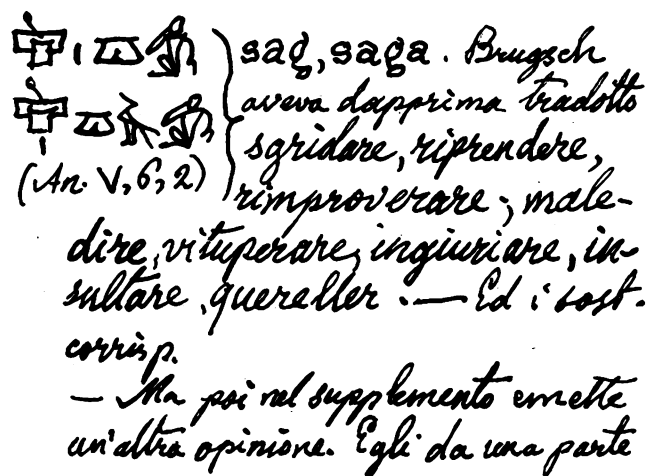 sag, saga. Brugsch
aveva dapprima tradotto
sgridare, riprendere,
(An. V, 6, 2) rimproverare; male-
dire, vituperare, ingiuriare, in-
sultare, quereller. — Ed i sost.
corrisp.
— Ma poi nel supplemento emette
un'altra opinione. Egli da una parte